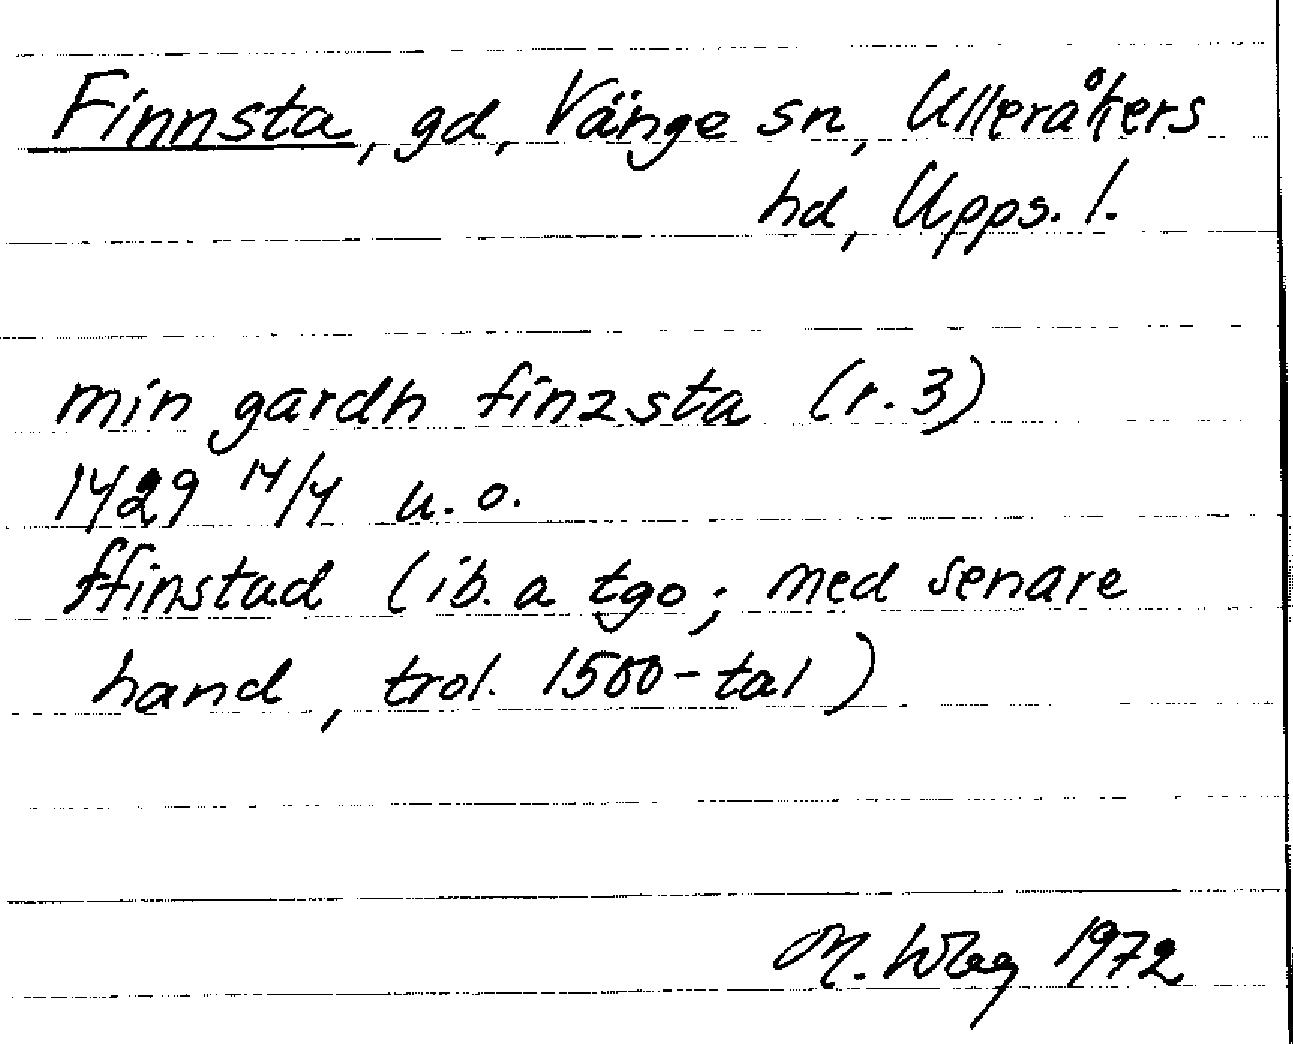 Finnsta, gd, Vänge sn, Ulleråkers
hd, Upps. l.
min gardh finzsta (r. 3)
1429 14/4 u. o.
ffinstad (ib. a tgo; med senare
hand, trol. 1500-tal)
M. 1972